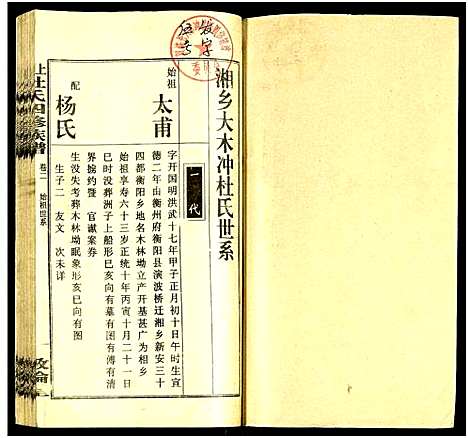 湘乡大木冲杜氏世系
一代
始祖
太甫
字开国明洪武十七年甲子正月初十日午时生宣
德二年由衡州府衡阳县演波桥迁湘乡新安三十
四都衡阳乡地名木林坳立产开基甚广为相乡
始祖享寿六十三岁正统十年丙寅十月二十一日
巳时没葬洲子上船形巳亥向有墓有图有傅有清
界捥约暨 官谳案券
配
杨氏
生没失考葬木林坳眠象形亥巳向有图
生子二 友文 次未详
上杜氏四修族谱
卷二
始祖世系
一
敦伦